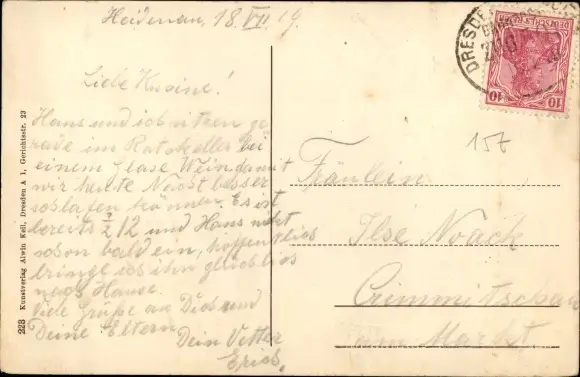 Heidenau, 18.VII.19
Liebe Kusine!
Hans und ich sitzen ge
rade im Ratskeller bei
einem Glase Wein damit
wir heute Nacht besser
schlafen können. Es ist
bereits ½ 12 und Hans nickt
schon bald ein, hoffentlich
bringe ich ihn glücklich
nach Hause.
Viele Grüße an Dich und
Deine Eltern
Dein Vetter
Erich.
DRESDEN
DEUTSCHES REICH
10 10
157
Fräulein
Ilse Noack
Crimmitschau
am Markt.
223 Kunstverlag Alwin Keil, Dresden A 1, Gerichtsstr. 23